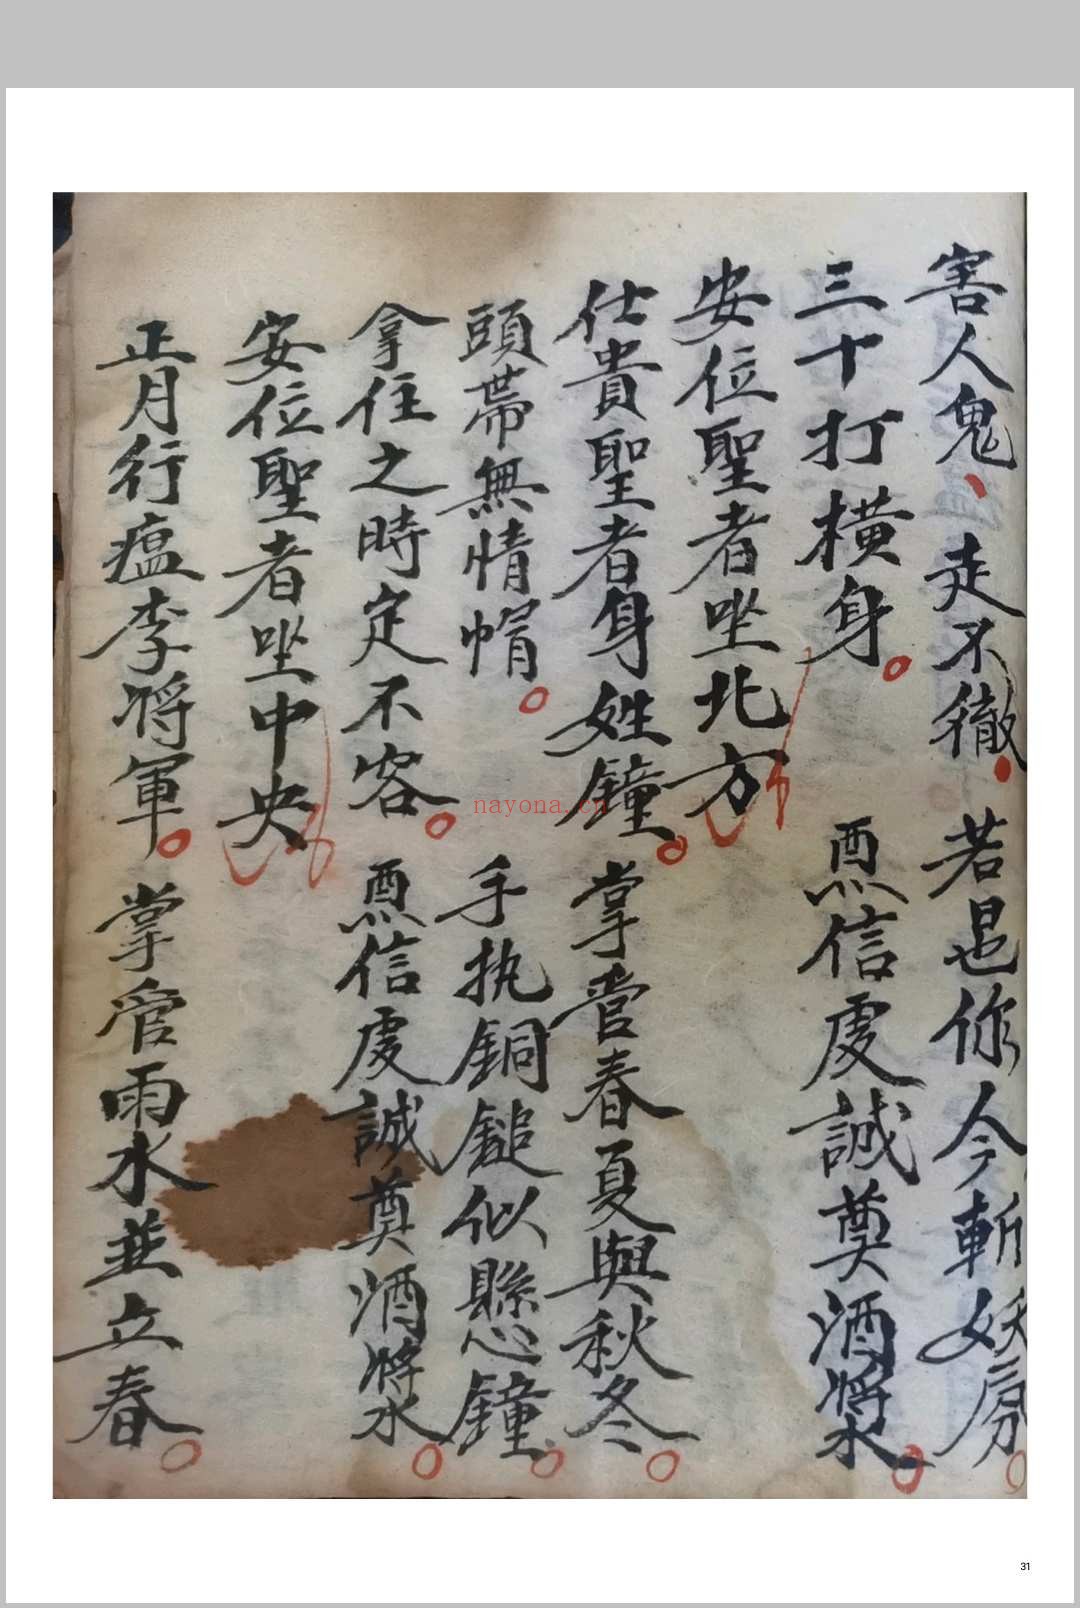 害人鬼、走不徹。若邑你今斬妖氛。
三十打橫身。𤋮信虔誠奠酒漿。
安位聖者坐北方
仕貴聖者身姓鐘。掌管春夏與秋冬。
頭帶無情帽。手执銅鎚似懸鐘。
拿住之時定不容。信虔誠奠酒漿。
安位聖者坐中央
正月行瘟李将軍。掌管雨水並立春。
nayona.cn
31